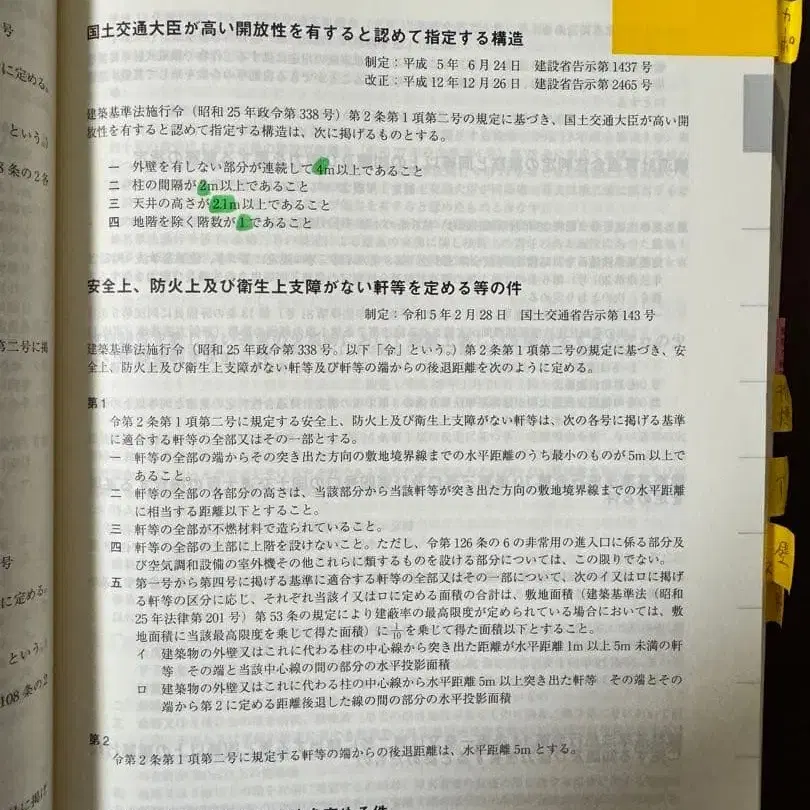 国土交通大臣が高い開放性を有すると認めて指定する構造
制定：平成 5 年 6 月 24 日　建設省告示第 1437 号
改正：平成 12 年 12 月 26 日　建設省告示第 2465 号
建築基準法施行令（昭和 25 年政令第 338 号）第 2 条第 1 項第二号の規定に基づき、国土交通大臣が高い開
放性を有すると認めて指定する構造は、次に掲げるものとする。
一　外壁を有しない部分が連続して 4m 以上であること
二　柱の間隔が 2m 以上であること
三　天井の高さが 2.1m 以上であること
四　地階を除く階数が 1 であること
安全上、防火上及び衛生上支障がない軒等を定める等の件
制定：令和 5 年 2 月 28 日　国土交通省告示第 143 号
建築基準法施行令（昭和 25 年政令第 338 号。以下「令」という。）第 2 条第 1 項第二号の規定に基づき、安
全上、防火上及び衛生上支障がない軒等及び軒等の端からの後退距離を次のように定める。
第 1
令第 2 条第 1 項第二号に規定する安全上、防火上及び衛生上支障がない軒等は、次の各号に掲げる基準
に適合する軒等の全部又はその一部とする。
一　軒等の全部の端からその突き出た方向の敷地境界線までの水平距離のうち最小のものが 5m 以上で
あること。
二　軒等の全部の各部分の高さは、当該部分から当該軒等が突き出た方向の敷地境界線までの水平距離
に相当する距離以下とすること。
三　軒等の全部が不燃材料で造られていること。
四　軒等の全部の上部に上階を設けないこと。ただし、令第 126 条の 6 の非常用の進入口に係る部分及
び空気調和設備の室外機その他これらに類するものを設ける部分については、この限りでない。
五　第一号から第四号に掲げる基準に適合する軒等の全部又はその一部について、次のイ又はロに掲げ
る軒等の区分に応じ、それぞれ当該イ又はロに定める面積の合計は、敷地面積（建築基準法（昭和
25 年法律第 201 号）第 53 条の規定により建蔽率の最高限度が定められている場合においては、敷
地面積に当該最高限度を乗じて得た面積）に 1/10 を乗じて得た面積以下とすること。
イ　建築物の外壁又はこれに代わる柱の中心線から突き出た距離が水平距離 1m 以上 5m 未満の軒
等　その端と当該中心線の間の部分の水平投影面積
ロ　建築物の外壁又はこれに代わる柱の中心線から水平距離 5m 以上突き出た軒等　その端とその
端から第 2 に定める距離後退した線の間の部分の水平投影面積
第 2
令第 2 条第 1 項第二号に規定する軒等の端からの後退距離は、水平距離 5m とする。
号
に定める。
という。
8 条の 2 各
第二号に掲
号
に定める。
という。
108 条の 2